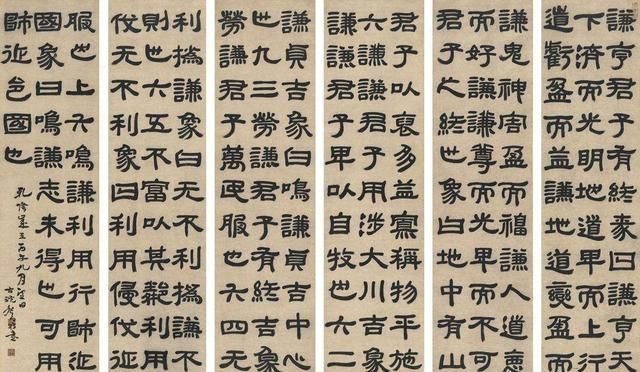 謙亨君子有終彖曰謙亨天
下濟而光明地道卑而上行
道虧盈而益謙地道變盈而
謙鬼神害盈而福謙人道惡
而好謙謙尊而光卑而不可
君子之終也象曰地中有山
君子以裒多益寡稱物平施
六謙謙君子用涉大川吉象
謙謙君子卑以自牧也六二
謙貞吉象曰鳴謙貞吉中心
也九三勞謙君子有終吉象
勞謙君子萬民服也六四无
利撝謙象曰无不利撝謙不
則也六五不富以其鄰利用
伐无不利象曰利用侵伐征
服也上六鳴謙利用行師征
國象曰鳴謙志未得也可用
師征邑國也
丙午九月望日